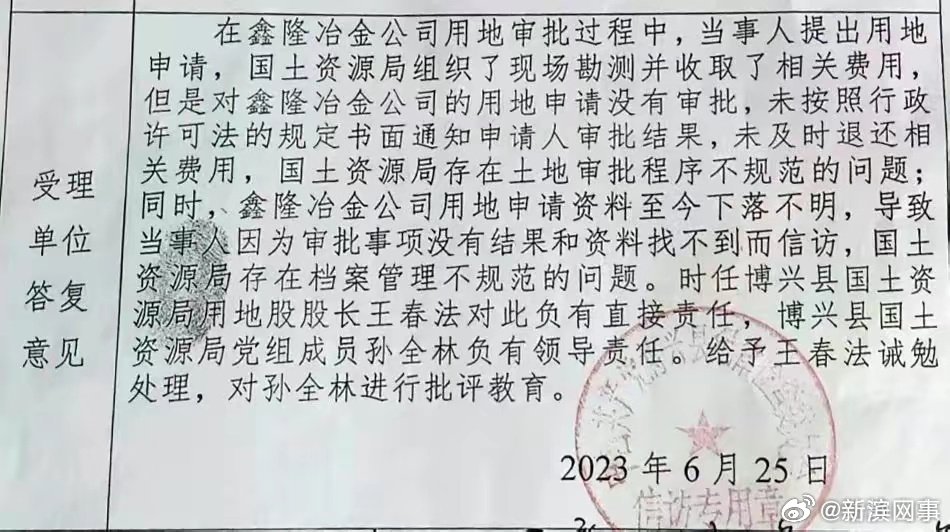 在鑫隆冶金公司用地审批过程中，当事人提出用地
申请，国土资源局组织了现场勘测并收取了相关费用，
但是对鑫隆冶金公司的用地申请没有审批，未按照行政
许可法的规定书面通知申请人审批结果，未及时退还相
关费用，国土资源局存在土地审批程序不规范的问题；
同时，鑫隆冶金公司用地申请资料至今下落不明，导致
当事人因为审批事项没有结果和资料找不到而信访，国土
资源局存在档案管理不规范的问题。时任博兴县国土资
源局用地股股长王春法对此负有直接责任，博兴县国土
资源局党组成员孙全林负有领导责任。给予王春法诫勉
处理，对孙全林进行批评教育。
受理
单位
答复
意见
2023 年 6 月 25 日
信访专用章
@新滨网事